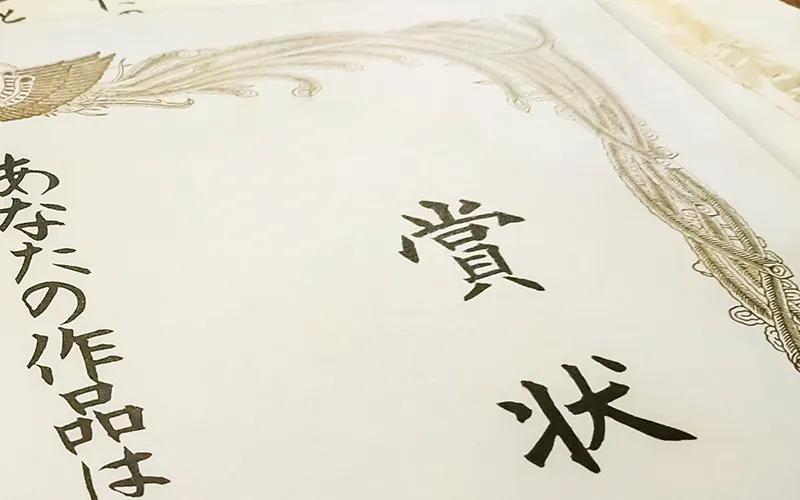 賞状
あなたの作品は